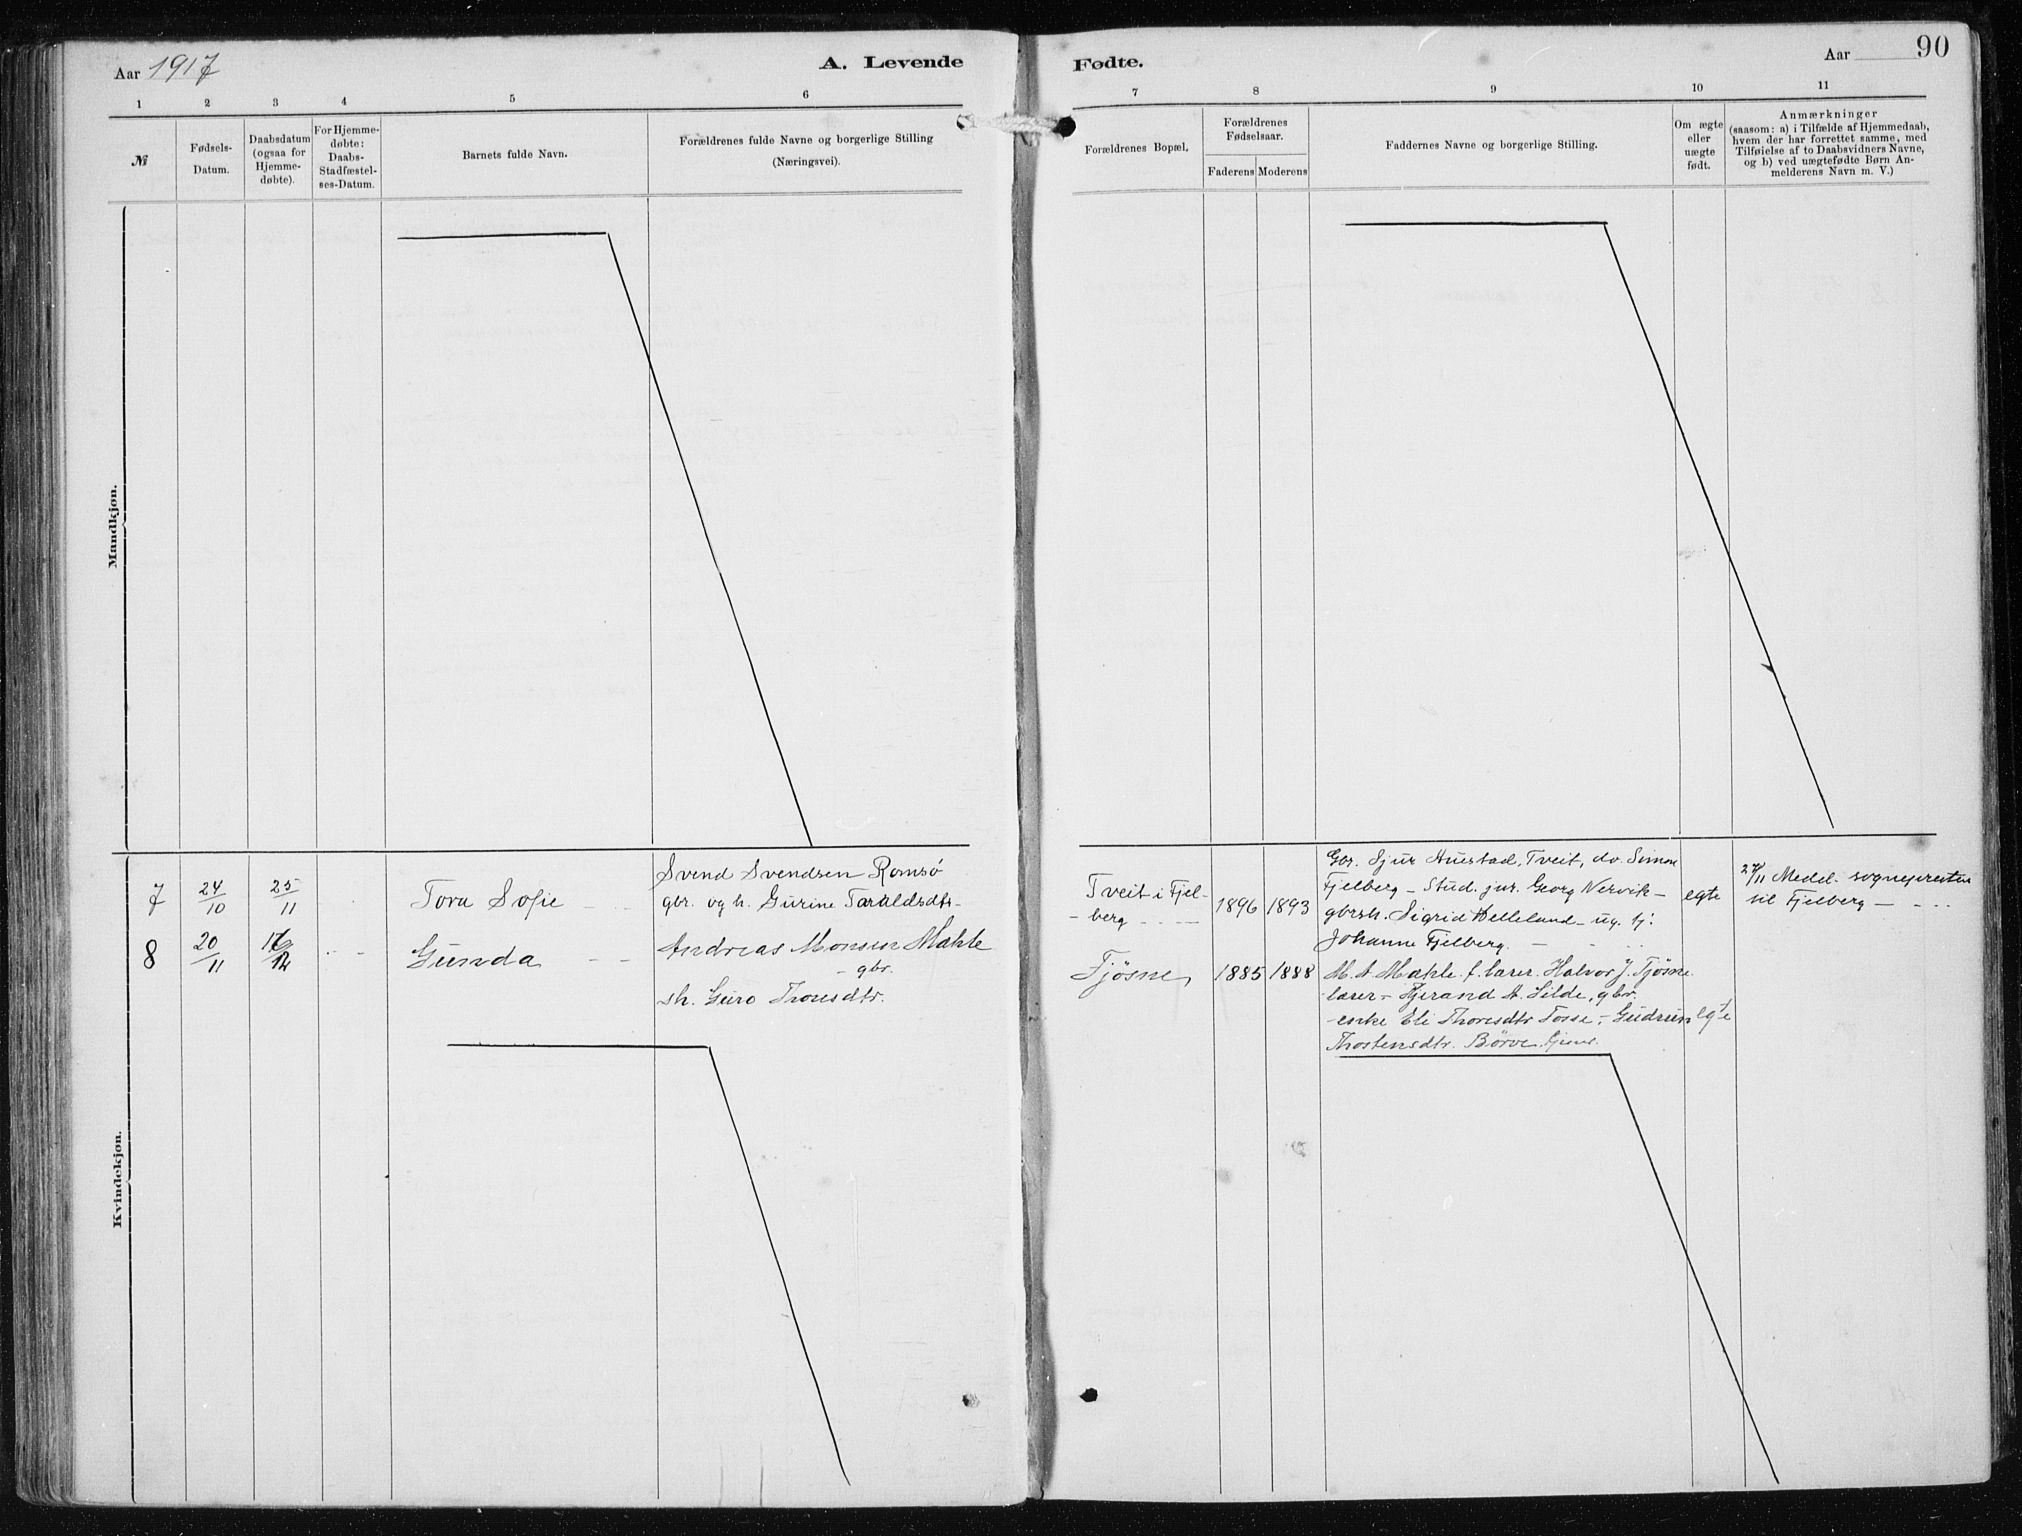 Aar 1917
A. Levende
Fødte.
Aar
90
1 2 3 4 5 6 7 8 9 10 11
№
Fødsels-
Datum.
Daabsdatum
(ogsaa for
Hjemme-
døbte).
For Hjemme-
døbte:
Daabs-
Stadfæstel-
ses-Datum.
Barnets fulde Navn.
Forældrenes fulde Navne og borgerlige Stilling
(Næringsvei).
Forældrenes Bopæl.
Forældrenes
Fødselsaar.
Faderens Moderens
Faddernes Navne og borgerlige Stilling.
Om ægte
eller
uægte
født.
Anmærkninger
(saasom: a) i Tilfælde af Hjemmedaab,
hvem der har forrettet samme, med
Tilføielse af to Daabsvidners Navne,
og b) ved uægtefødte Børn An-
melderens Navn m. V.)
Mandkjøn.
Kvindekjøn.
7
24/10
25/11
Tora Sofie
Svend Svendsen Romsö
gbr. og h. Gurine Taraldsdtr-
Tveit i Fjel-
berg
1896 1893
Gbr. Sjur Hustad, Tveit, do. Simon
Fjelberg - Stud. jur. Georg Nervik -
gbrsh. Sigrid Helleland - ug. tj:
Johanne Fjelberg.
egte
27/11 Medel. sognepresten
til Fjelberg -
8
20/11
Gunda
Andreas Monsen Mæhle
- gbr.
sh. Guro Thoresdtr.
Tjösne
1885 1888
M. A. Mæhle f. lærer. Halvor J. Tjösne
lærer - Tjerand A. Silde, gbr.
enke Eli Thoresdtr Tosse - Gudrun
Thostensdtr. Börve
egte